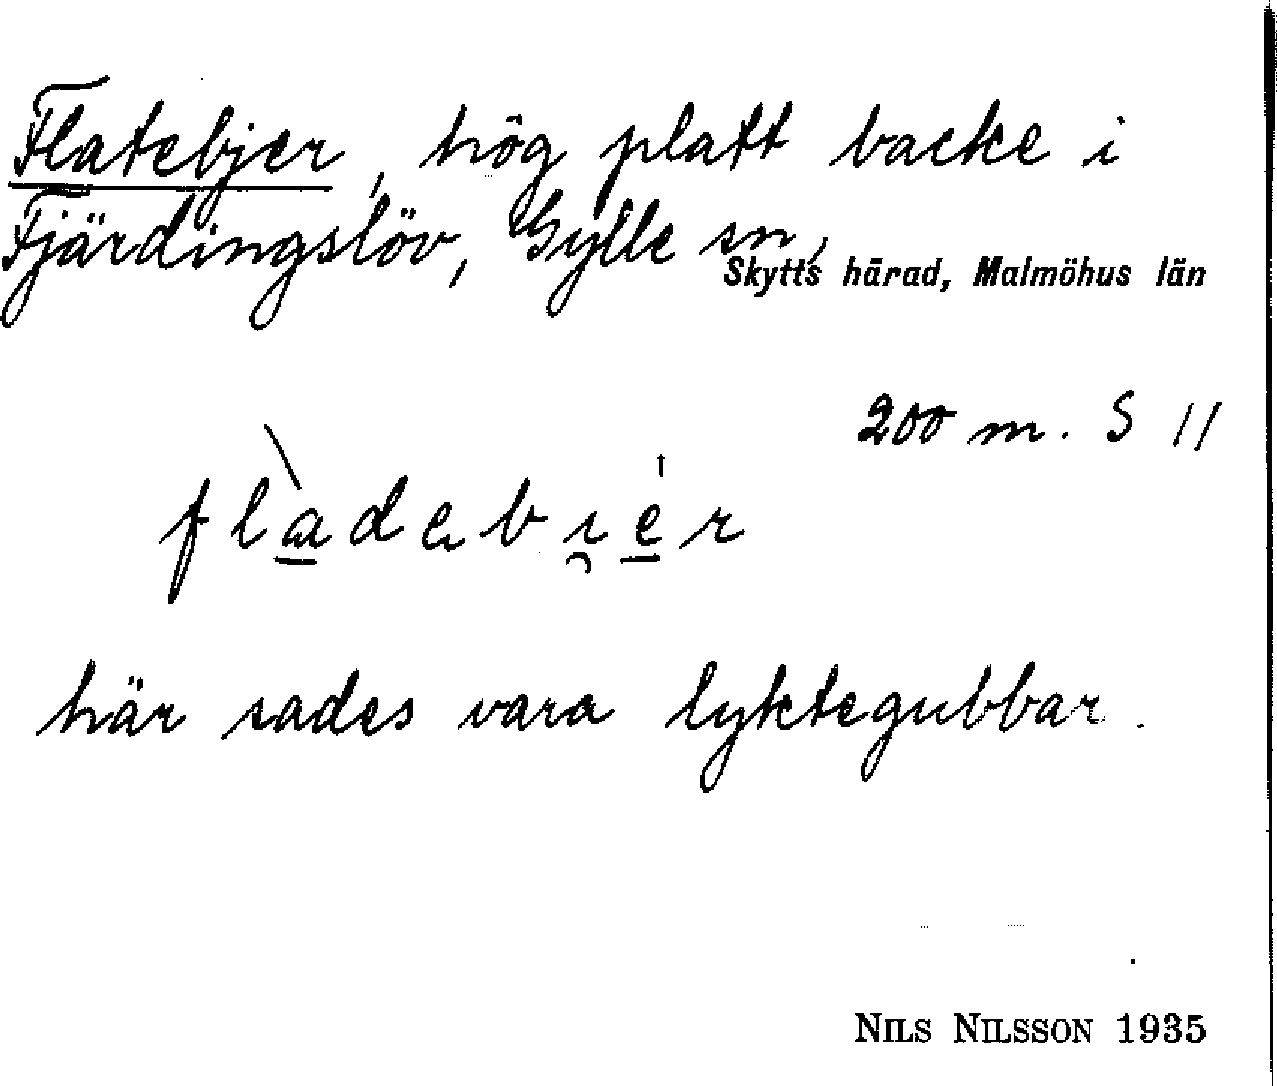 Flatebjer, hög platt backe i
Fjärdingslöv, Gylle sn,
Skytts härad, Malmöhus län
200 m. S 11
flàdebi̯er
här sades vara lyktegubbar.
NILS NILSSON 1935